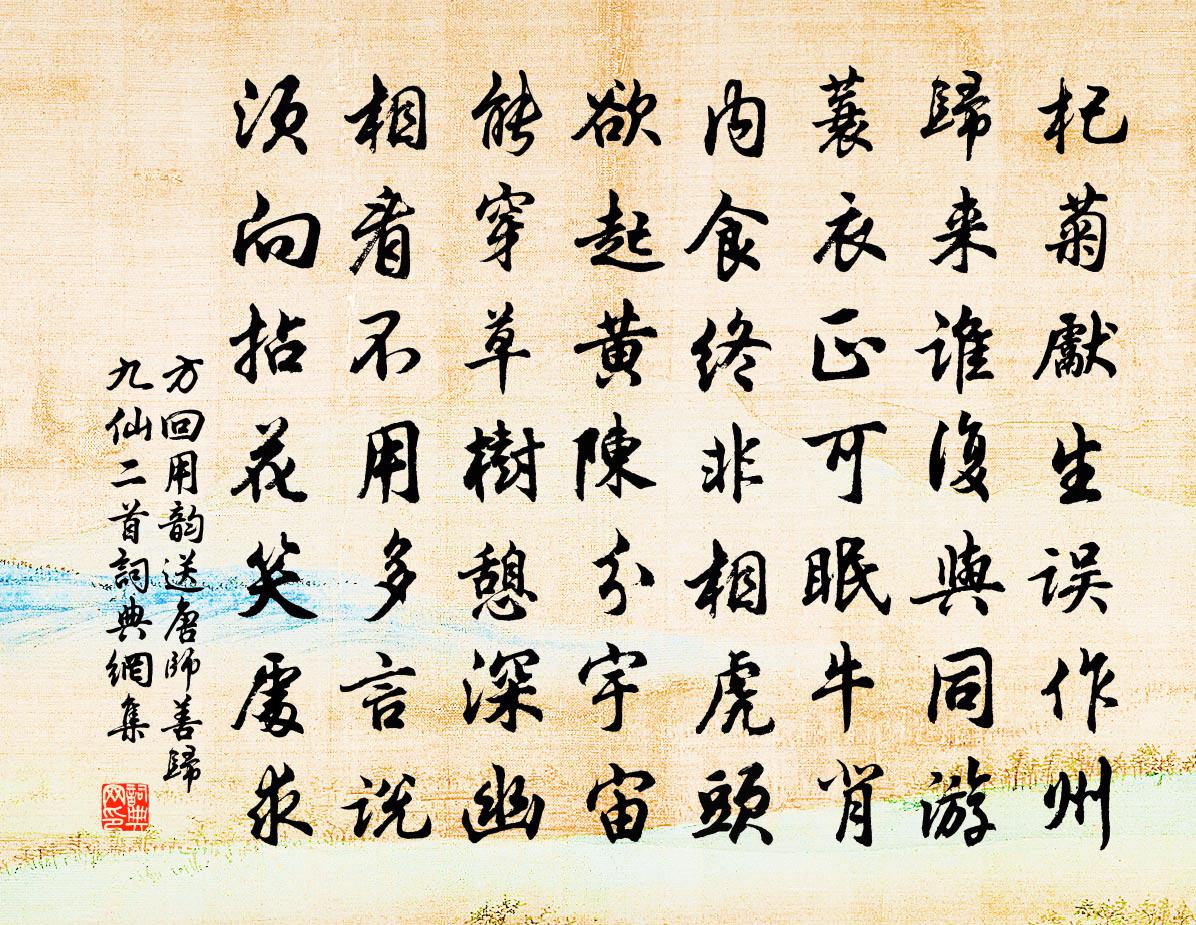 杞菊獻生误作州
歸来谁復與同游
蓑衣正可眠牛背
肉食终非相虎頭
欲起黄陳分宇宙
能穿草樹憩深幽
相看不用多言说
须向拈花笑處求
方回用韵送唐師善歸
九仙二首詞典網集
詞典
网印